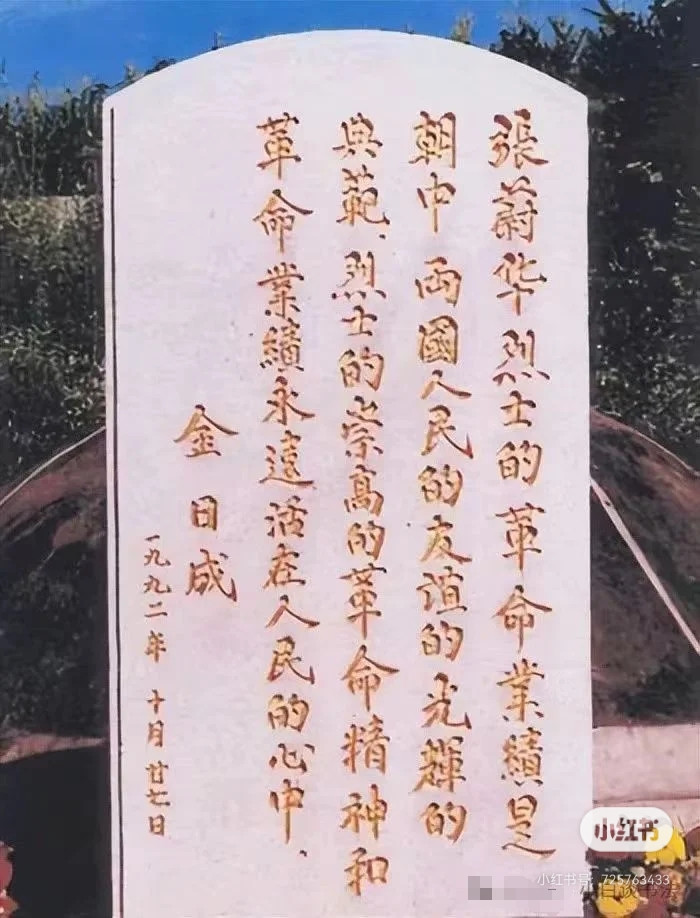 張蔚华烈士的革命業績是
朝中兩國人民的友誼的光輝的
典範、烈士的崇高的革命精神和
革命業績永遠活在人民的心中、
金日成
一九九二年十月廿七日
小红书
小红书号: 725763433